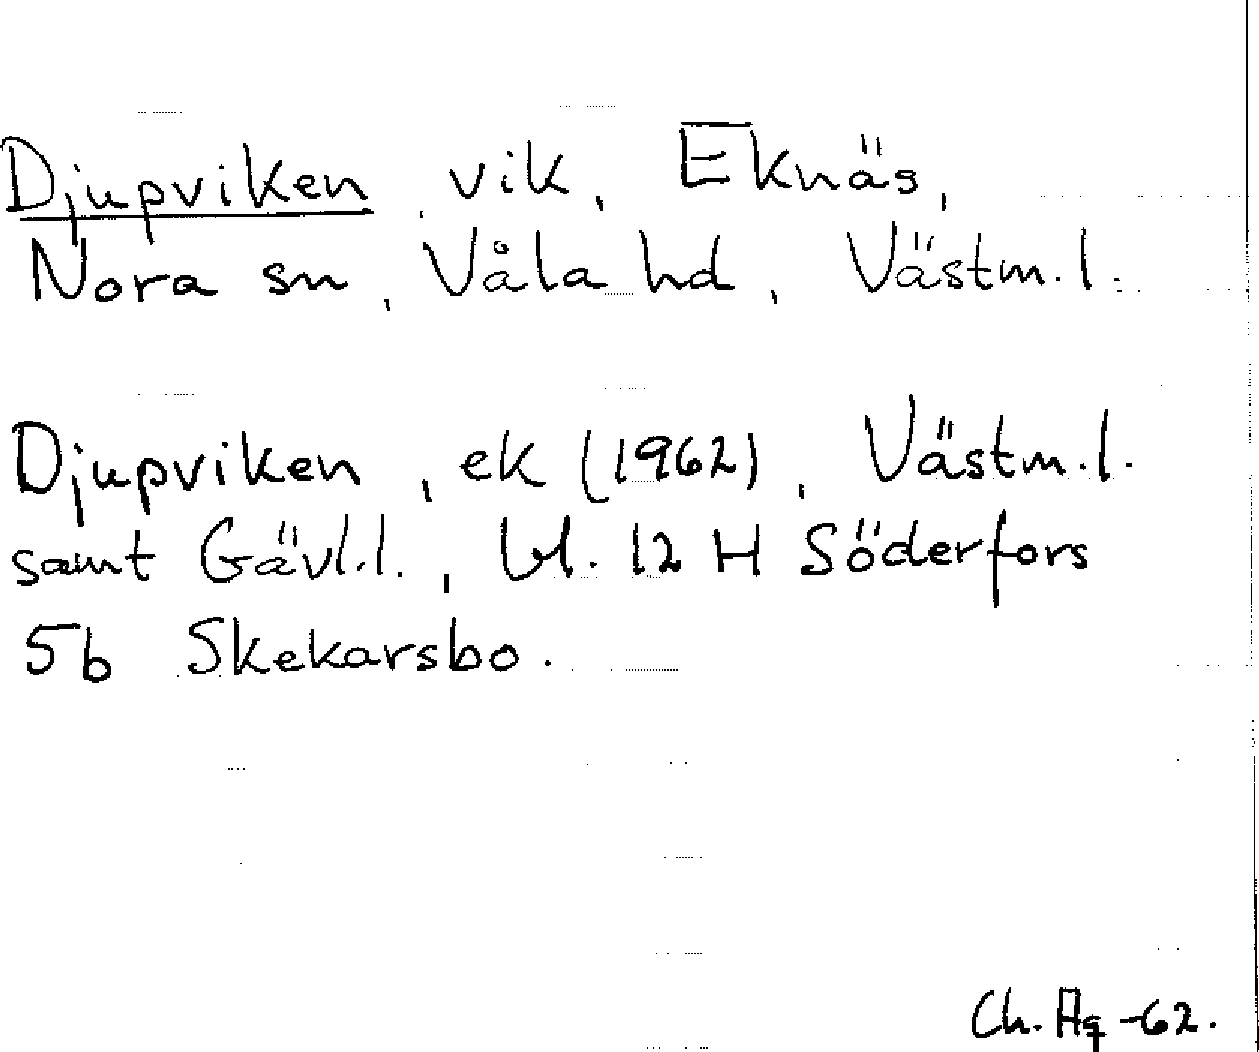 Djupviken, vik, Eknäs,
Nora sn, Våla hd, Västm.l.
Djupviken, ek (1962), Västm.l.
samt Gävl.l., bl. 12 H Söderfors
5b Skekarsbo.
Ch. Ag -62.